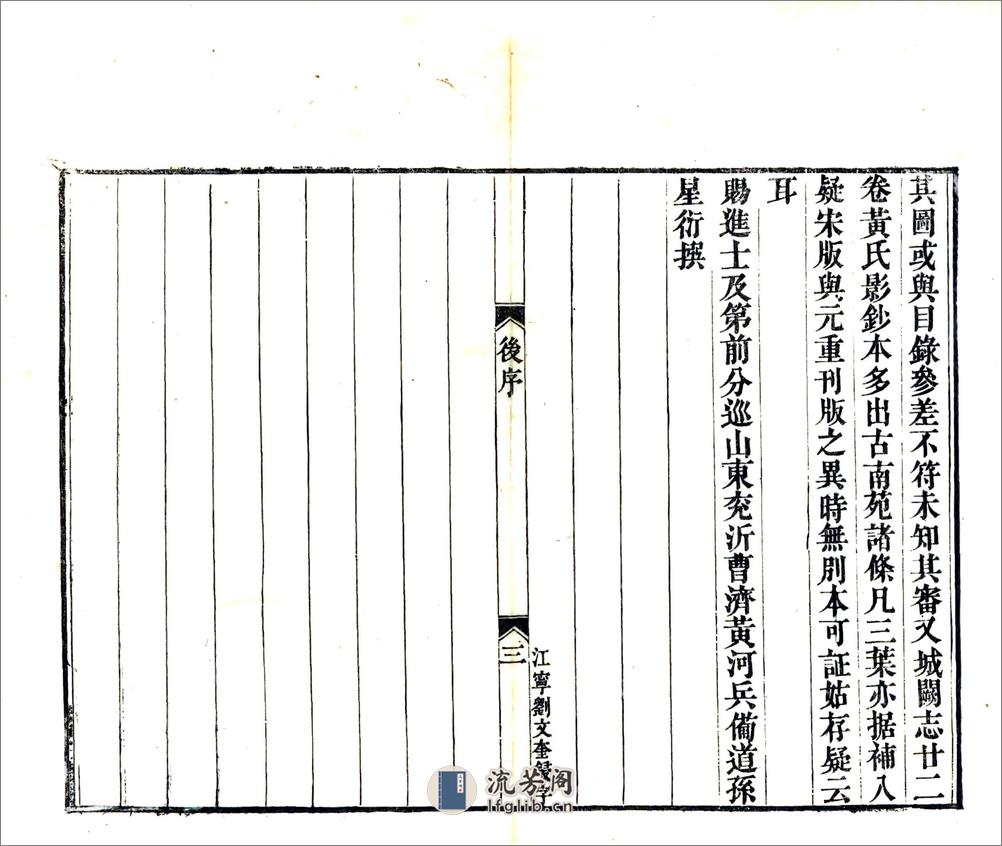 其圖或與目錄參差不符未知其審又城闕志廿二
卷黃氏影鈔本多出古南苑諸條凡三葉亦据補入
疑宋版與元重刊版之異時無別本可証姑存疑云
耳
賜進士及第前分巡山東兖沂曹濟黃河兵備道孫
星衍撰
後序
三
江寧劉文奎鐫字
流芳阁
lfglib.cn